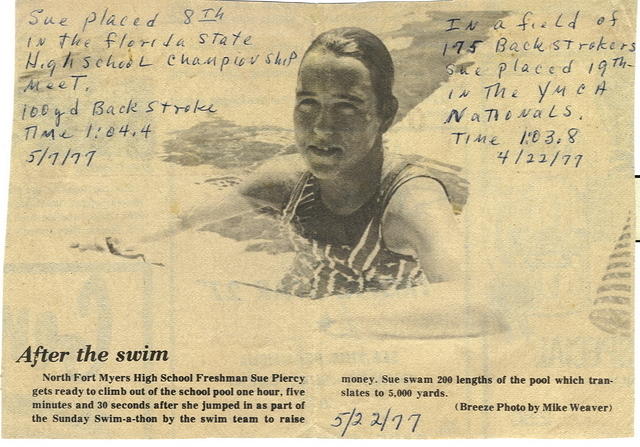 Sue placed 8th
in the Florida State
High School Championship
Meet.
100yd Back Stroke
Time 1:04.4
5/7/77
In a field of
175 Back Strokers
Sue placed 19th
in the YMCA
Nationals.
Time 1:03.8
4/22/77
After the swim
North Fort Myers High School Freshman Sue Piercy
gets ready to climb out of the school pool one hour, five
minutes and 30 seconds after she jumped in as part of
the Sunday Swim-a-thon by the swim team to raise
money. Sue swam 200 lengths of the pool which tran-
slates to 5,000 yards.
(Breeze Photo by Mike Weaver)
5/22/77